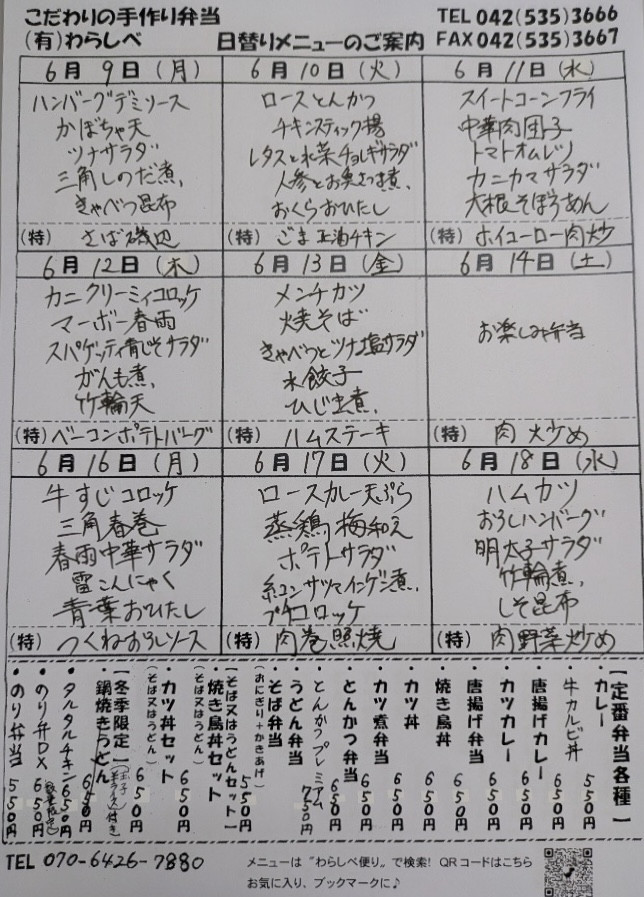 こだわりの手作り弁当
(有)わらしべ 日替りメニューのご案内
TEL 042(535)3666
FAX 042(535)3667
6月9日(月)
ハンバーグデミソース
かぼちゃ天
ツナサラダ
三角しのだ煮、
きゃべつ昆布
(特) さば磯辺
6月10日(火)
ロースとんかつ
チキンスティック揚
レタスと水菜チョレギサラダ
人参とお魚さつま煮、
おくらおひたし
(特) ごま正油チキン
6月11日(水)
スイートコーンフライ
中華肉団子
トマトオムレツ
カニカマサラダ
大根そぼろあん
(特) ホイコーロー肉炒
6月12日(木)
カニクリーミィコロッケ
マーボー春雨
スパゲッティ青じそサラダ
がんも煮、
竹輪天
(特) ベーコンポテトバーグ
6月13日(金)
メンチカツ
焼そば
きゃべつとツナ塩サラダ
水餃子
ひじき煮、
(特) ハムステーキ
6月14日(土)
お楽しみ弁当
(特) 肉炒め
6月16日(月)
牛すじコロッケ
三角春巻
春雨中華サラダ
雷こんにゃく
青葉おひたし
(特) つくねおろしソース
6月17日(火)
ロースカレー天ぷら
蒸鶏梅和え
ポテトサラダ
糸コンサツマインゲン煮、
プチコロッケ
(特) 肉巻照焼
6月18日(水)
ハムカツ
おろしハンバーグ
明太子サラダ
竹輪煮、
しそ昆布
(特) 肉野菜炒め
【定番弁当各種】
カレー 550円
・牛カルビ丼 650円
・唐揚げカレー 650円
・カツカレー 650円
・唐揚げ弁当 650円
・焼き鳥丼 650円
・カツ丼 650円
・カツ煮弁当 650円
・とんかつ弁当 650円
・とんかつプレミアム 750円
・うどん弁当
・そば弁当
(おにぎり+かきあげ) 550円
【そば又はうどんセット】
・焼き鳥丼セット
(そば又はうどん) 650円
・カツ丼セット
(そば又はうどん) 650円
【冬季限定】
・鍋焼きうどん
・タルタルチキン 650円
・のり弁DX 650円
・のり弁当 550円
TEL 070-6426-7880
メニューは"わらしべ便り"で検索! QRコードはこちら
お気に入り、ブックマークに♪